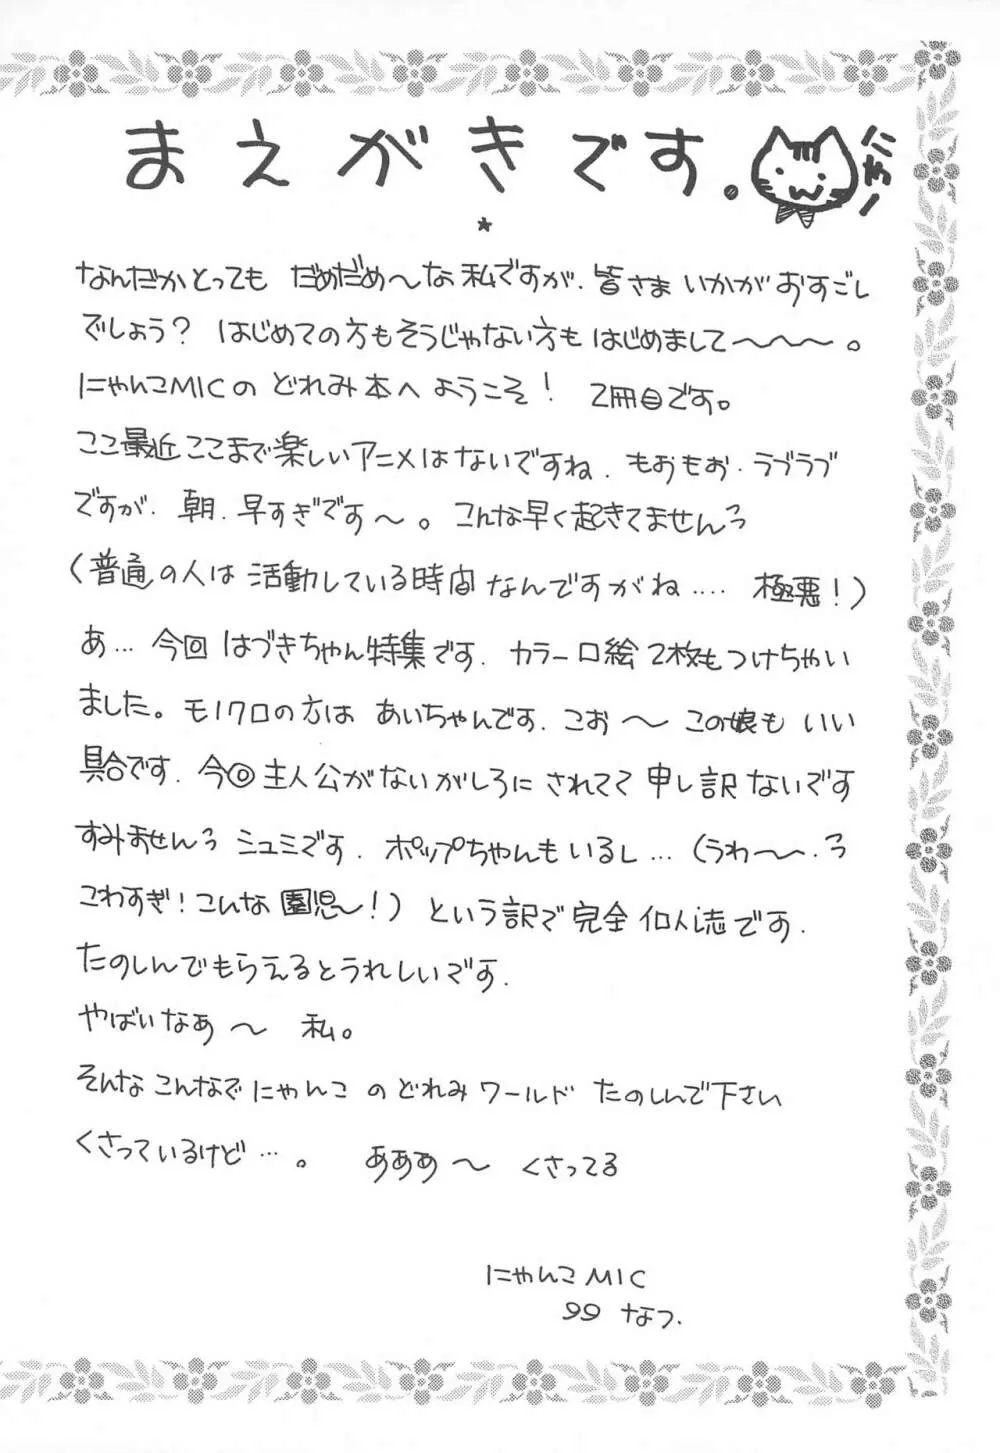 まえがきです。
にゃー
なんだかとっても だめだめ〜な私ですが、皆さま いかが おすごし
でしょう? はじめての方もそうじゃない方も はじめまして〜〜〜。
にゃんこMICの どれみ本へ ようこそ! 2冊目です。
ここ最近ここまで楽しいアニメはないですね、もおもお・ラブラブ
ですが、朝、早すぎです〜。こんな早く起きてませんっ
(普通の人は 活動している時間なんですがね…. 極悪!)
あ… 今回 はづきちゃん特集です、カラー口絵2枚もつけちゃい
ました。モノクロの方は あいちゃんです、こお〜 この娘も いい
具合です、今回主人公がないがしろに されてて 申し訳ないです
すみませんっ シュミです、ポップちゃんもいるし…(うわ〜、っ
こわすぎ!こんな 園児〜!) という訳で 完全 個人誌です、
たのしんでもらえるとうれしいです、
やばいなぁ〜 私。
そんなこんなで にゃんこ の どれみワールド たのしんで下さい
くさっているけど…。 あああ〜 くさってる
にゃんこ MIC
99 なつ、